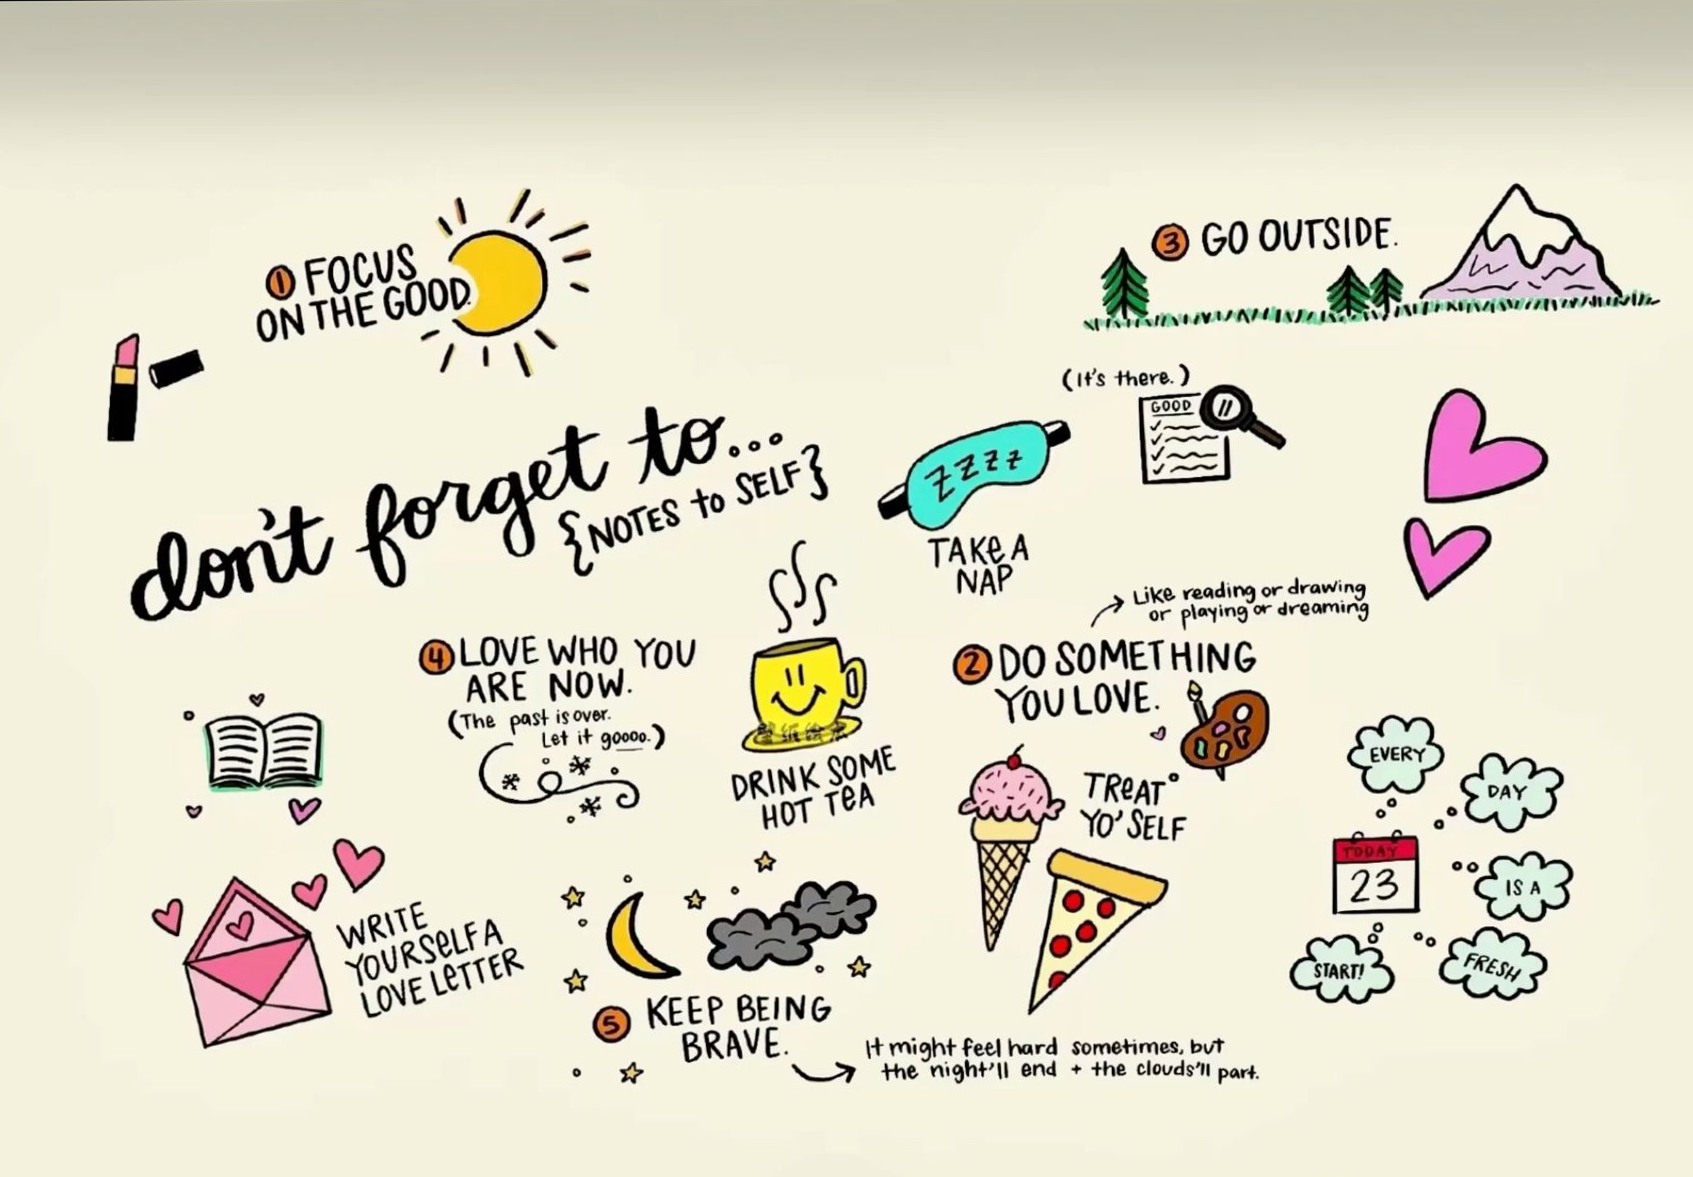 1 FOCUS
ON THE GOOD.
3 GO OUTSIDE.
(It's there.)
GOOD
don't forget to...
{NOTES to SELF}
ZZZZ
TAKE A
NAP
Like reading or drawing
or playing or dreaming
4 LOVE WHO YOU
ARE NOW.
(The past is over.
Let it goooo.)
2 DO SOMETHING
YOU LOVE.
DRINK SOME
HOT TEA
TREAT
YO' SELF
EVERY
DAY
IS A
FRESH
START!
TODAY
23
WRITE
YOURSELF A
LOVE LETTER
5 KEEP BEING
BRAVE.
It might feel hard sometimes, but
the night'll end + the clouds'll part.